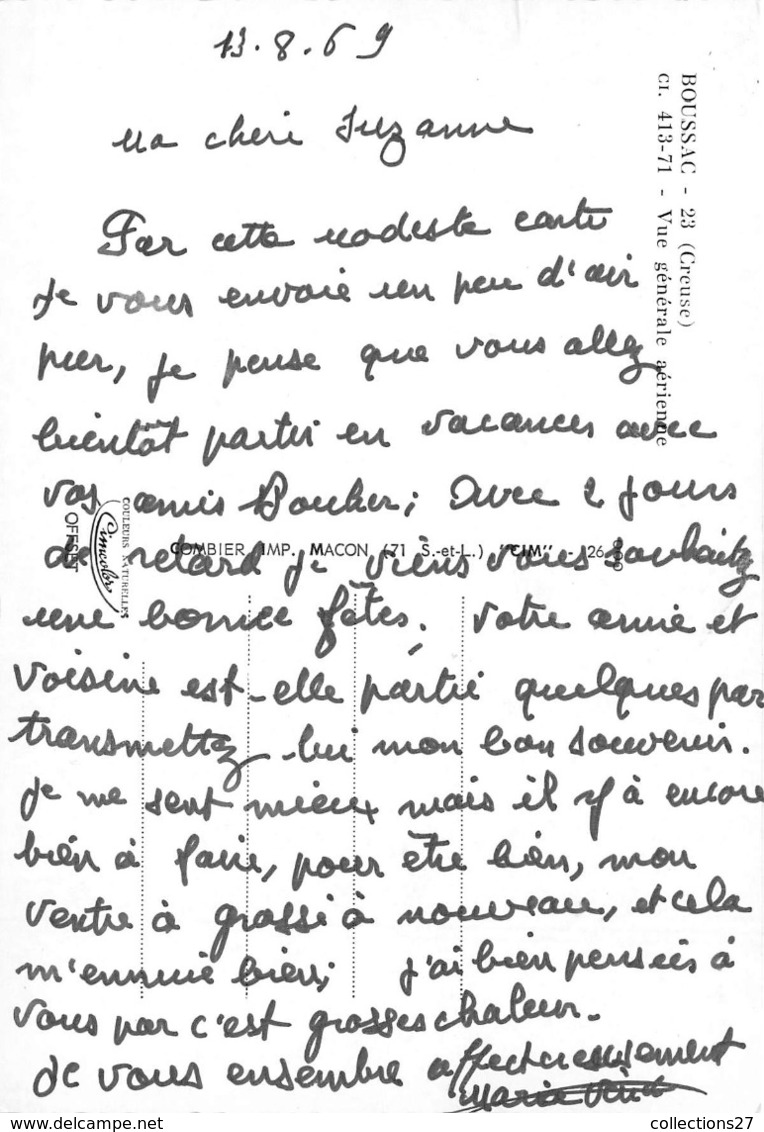 13.8.69
Ma cheri Suzanne
Par cette modeste carte
je vous envoie un peu d'air
pur, je pense que vous allez
bientôt partir en vacances avec
vos amis ; avec 2 jours
de retard je viens vous souhaitez
une bonne fêtes. Votre amie et
voisine est-elle partie quelques par
transmettez lui mon bon souvenir.
je me sent mieux mais il y à encore
bien à faire, pour être bien, mon
ventre à grossi à nouveau, et cela
m'ennuie bien; j'ai bien pensées à
vous par c'est grosses chaleur.
je vous ensembre affectueusement
Maria
BOUSSAC - 23 (Creuse)
CI. 413-71 - Vue générale aérienne
COULEURS NATURELLES
Cimcolor
OFFSET
COMBIER IMP. MACON (71 S.-et-L.) "CIM" - 26
collections27